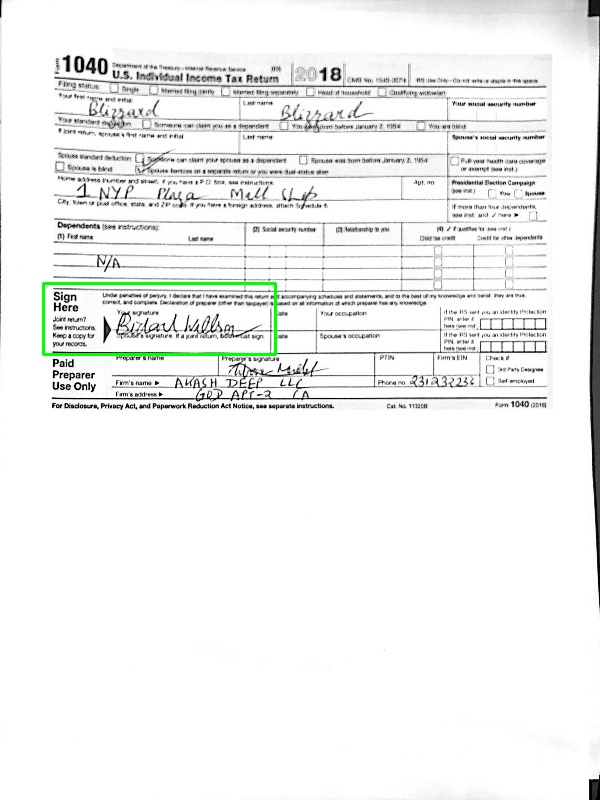 Form 1040 Department of the Treasury—Internal Revenue Service (99) U.S. Individual Income Tax Return 2018 OMB No. 1545-0074 IRS Use Only—Do not write or staple in this space.
Filing status: Single Married filing jointly Married filing separately Head of household Qualifying widow(er)
Your first name and initial Last name Your social security number
Blizzard Blizzard
Your standard deduction: Someone can claim you as a dependent You were born before January 2, 1954 You are blind
If joint return, spouse's first name and initial Last name Spouse's social security number
Spouse standard deduction: Someone can claim your spouse as a dependent Spouse was born before January 2, 1954 Full-year health care coverage
Spouse is blind Spouse itemizes on a separate return or you were dual-status alien or exempt (see inst.)
Home address (number and street). If you have a P.O. box, see instructions. Apt. no. Presidential Election Campaign
1 NYP Plaza Mall (see inst.) You Spouse
City, town or post office, state, and ZIP code. If you have a foreign address, attach Schedule 6. If more than four dependents,
see inst. and ✓ here ▶
Dependents (see instructions): (2) Social security number (3) Relationship to you (4) ✓ if qualifies for (see inst.):
(1) First name Last name Child tax credit Credit for other dependents
N/A
Sign Here Under penalties of perjury, I declare that I have examined this return and accompanying schedules and statements, and to the best of my knowledge and belief, they are true,
correct, and complete. Declaration of preparer (other than taxpayer) is based on all information of which preparer has any knowledge.
Joint return? See instructions. Keep a copy for your records.
Your signature Date Your occupation If the IRS sent you an Identity Protection
PIN, enter it here (see inst.)
Spouse's signature. If a joint return, both must sign. Date Spouse's occupation If the IRS sent you an Identity Protection
PIN, enter it here (see inst.)
Paid Preparer Use Only
Preparer's name Preparer's signature PTIN Firm's EIN Check if:
3rd Party Designee
Firm's name ▶ AKASH DEEP LLC Phone no. 231232236 Self-employed
Firm's address ▶ GRD APT-2 CA
For Disclosure, Privacy Act, and Paperwork Reduction Act Notice, see separate instructions. Cat. No. 11320B Form 1040 (2018)